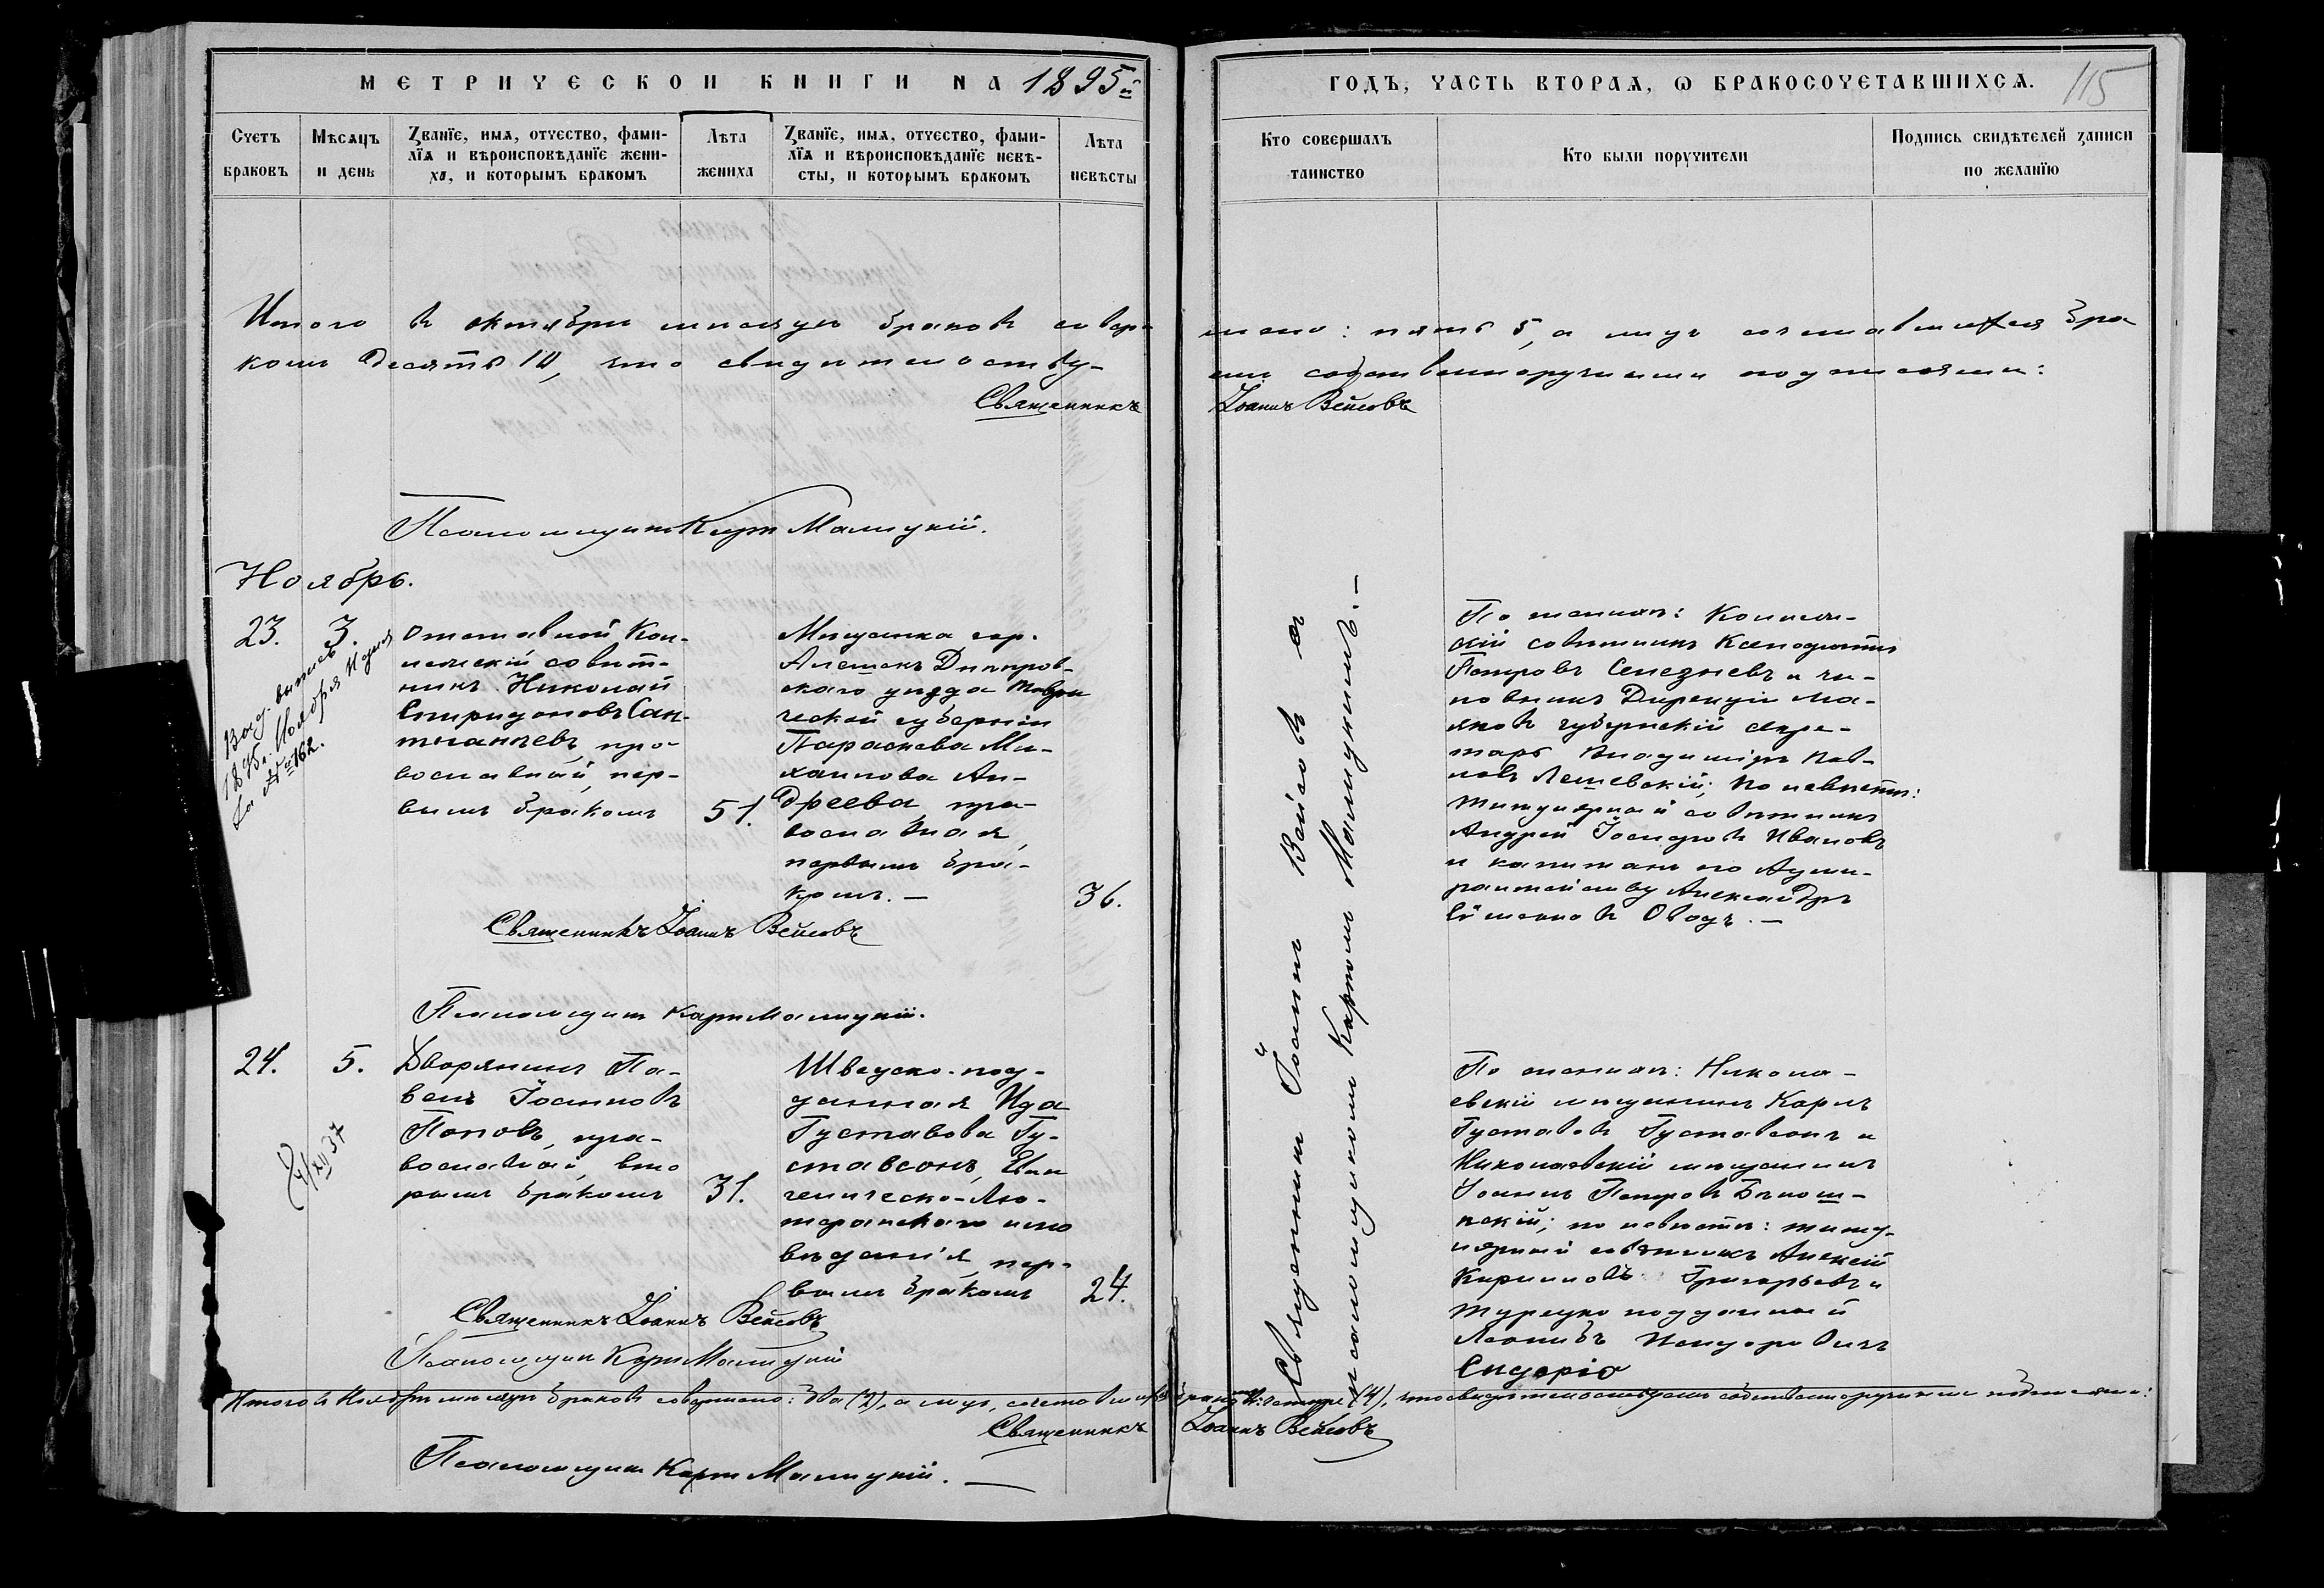 МЕТРИЧЕСКОЙ КНИГИ НА 1895й
ГОДЪ, ЧАСТЬ ВТОРАЯ, Ѡ БРАКОСОЧЕТАВШИХСЯ.
115
Счетъ браковъ
Мѣсяцъ и день
Званїе, имя, отчество, фами-
лїя и вѣроисповѣданїе жени-
ха, и которымъ бракомъ
Лѣта жениха
Званїе, имя, отчество, фами-
лїя и вѣроисповѣданїе невѣ-
сты, и которымъ бракомъ
Лѣта невѣсты
Кто совершалъ таинство
Кто были поручители
Подпись свидѣтелей записи
по желанїю
Итого въ октябрѣ мѣсяцѣ браковъ совер-
шено: пять 5, а лицъ сочетавшихся бра
комъ десять 10, что свидѣтельству-
емъ собственноручными подписями:
Священникъ Іоаннъ Вейсовъ
Псаломщикъ Карпъ Малицкій.
Ноябрь.
23.
3.
Выд. выпись
1895 г. Ноября
за № 162.
Отставной Кол-
лежскій совѣт-
никъ Николай
Спиридоновъ Сан-
, пра-
вославный, пер-
вымъ бракомъ
51.
Мѣщанка гор.
Алешекъ Днѣпров-
скаго уѣзда Таври
ческой губерніи
Параскева Ми-
хаилова Ан-
дреева, пра-
вославная,
первымъ бра-
комъ. —
36.
Священникъ Іоаннъ Вейсовъ
Псаломщикъ Карпъ Малицкій.
По женихѣ: Коллеж-
скій совѣтникъ
Петровъ Селезневъ и чи-
новникъ Дирекціи Ма-
яковъ губернскій секре-
тарь Владиміръ Пав-
ловъ Лешевскій; по невѣстѣ:
Титулярный совѣтникъ
Андрей Іосифовъ Ивановъ
и капитанъ по Адми-
ралтейству Александръ
Оводъ. —
Священникъ Іоаннъ Вейсовъ съ
псаломщикомъ Карпомъ Малицкимъ. —
24.
5.
XII 37
Дворянинъ Па-
велъ Іоанновъ
Поповъ, пра-
вославный, вто
рымъ бракомъ
31.
Шведско-под-
данная Ида
Густавова Гу-
ставсонъ, Еван
гелическо-Лю-
теранскаго испо
вѣданія, пер-
вымъ бракомъ
24.
Священникъ Іоаннъ Вейсовъ
Псаломщикъ Карпъ Малицкій
По женихѣ: Никола-
евскій мѣщанинъ Карлъ
Густавовъ Густавсонъ и
Николаевскій мѣщанинъ
Іоаннъ Петровъ Бѣлош-
скій; по невѣстѣ: титу-
лярный совѣтникъ Алексѣй
Кирилловъ Григорьевъ и
турецко подданный
Сидеріо
Итого въ Ноябрѣ мѣсяцѣ браковъ совершено: два (2), а лицъ, сочетавшихся бракомъ: четыре (4), что свидѣтельствуемъ собственноручными подписями:
Священникъ Іоаннъ Вейсовъ
Псаломщикъ Карпъ Малицкій. —